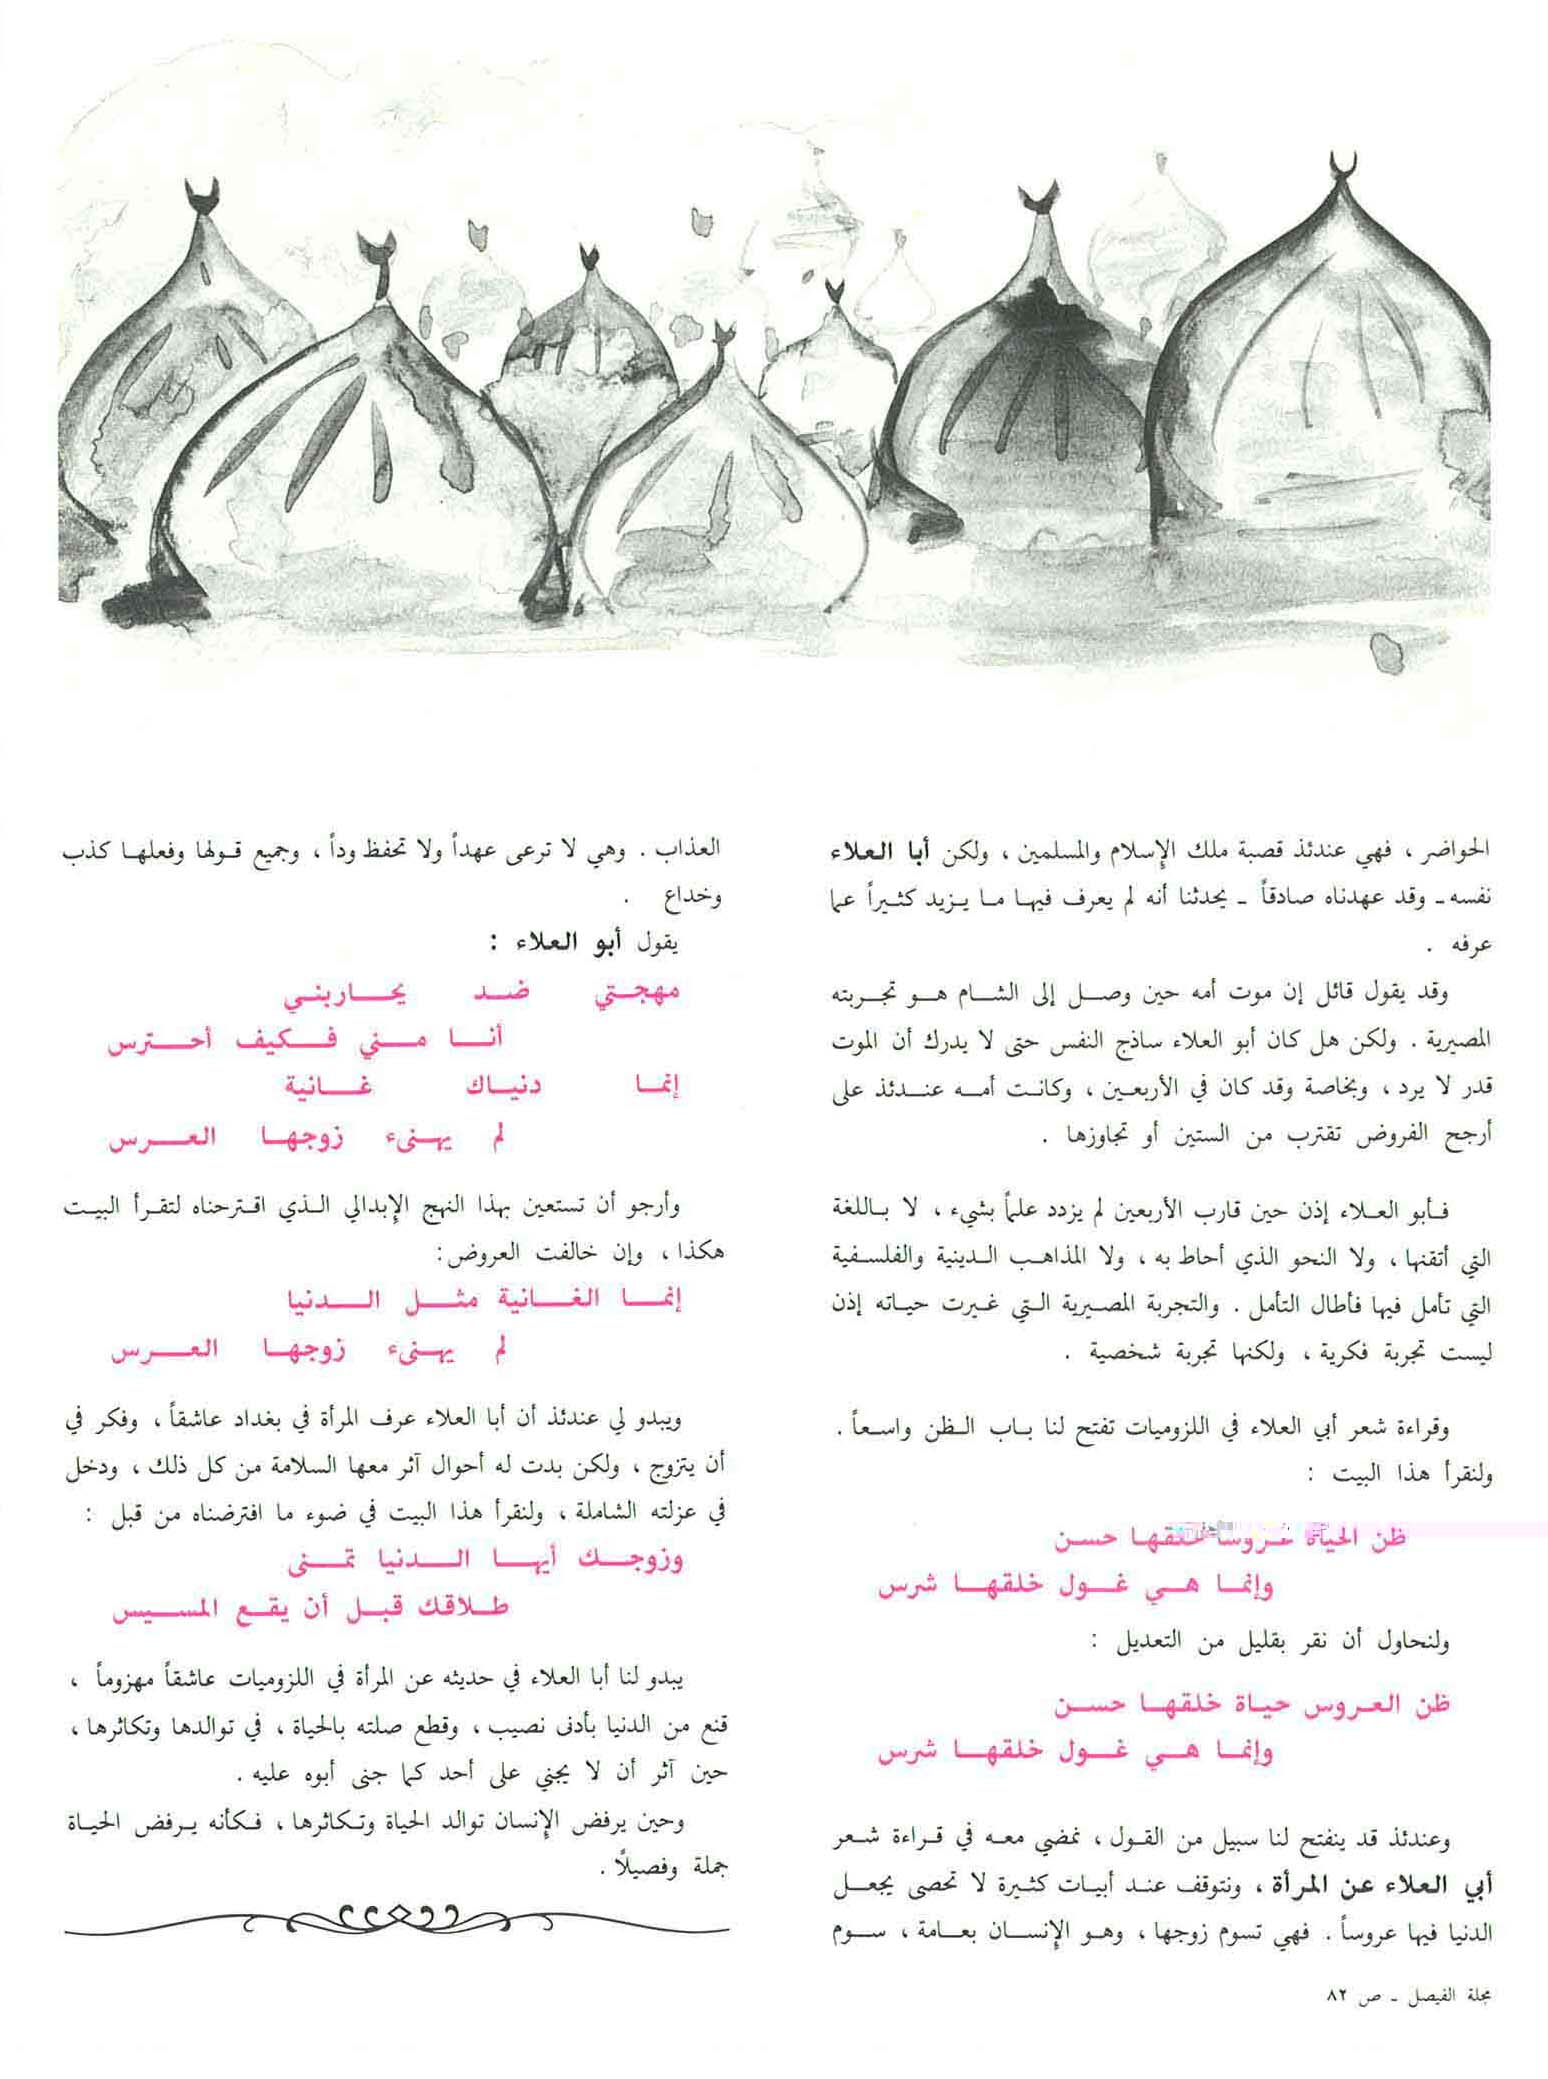 الحواضر ، فهي عندئذ قصبة ملك الإسلام والمسلمين ، ولكن أبا العلاء
نفسه ـ وقد عهدناه صادقاً ـ يحدثنا أنه لم يعرف فيها ما يزيد كثيراً عما
عرفه .
وقد يقول قائل إن موت أمه حين وصل إلى الشام هو تجربته
المصيرية . ولكن هل كان أبو العلاء ساذج النفس حتى لا يدرك أن الموت
قدر لا يرد ، وبخاصة وقد كان في الأربعين ، وكانت أمه عندئذ على
أرجح الفروض تقترب من الستين أو تجاوزها .
فأبو العلاء إذن حين قارب الأربعين لم يزدد علماً بشيء ، لا باللغة
التي أتقنها ، ولا النحو الذي أحاط به ، ولا المذاهب الدينية والفلسفية
التي تأمل فيها فأطال التأمل . والتجربة المصيرية التي غيرت حياته إذن
ليست تجربة فكرية ، ولكنها تجربة شخصية .
وقراءة شعر أبي العلاء في اللزوميات تفتح لنا باب الظن واسعاً .
ولنقرأ هذا البيت :
ظن الحياة عروسا خلقها حسن
وإنما هي غول خلقها شرس
ولنحاول أن نقر بقليل من التعديل :
ظن العروس حياة خلقها حسن
وإنما هي غول خلقها شرس
وعندئذ قد ينفتح لنا سبيل من القول ، نمضي معه في قراءة شعر
أبي العلاء عن المرأة ، ونتوقف عند أبيات كثيرة لا تحصى يجعل
الدنيا فيها عروساً . فهي تسوم زوجها ، وهو الإنسان بعامة ، سوم
العذاب . وهي لا ترعى عهداً ولا تحفظ وداً ، وجميع قولها وفعلها كذب
وخداع .
يقول أبو العلاء :
مهجتي ضد يحاربني
أنا مني فكيف أحترس
إنما دنياك غانية
لم يهنىء زوجها العرس
وأرجو أن تستعين بهذا النهج الإبدالي الذي اقترحناه لتقرأ البيت
هكذا ، وإن خالفت العروض :
إنما الغانية مثل الدنيا
لم يهنىء زوجها العرس
ويبدو لي عندئذ أن أبا العلاء عرف المرأة في بغداد عاشقاً ، وفكر في
أن يتزوج ، ولكن بدت له أحوال آثر معها السلامة من كل ذلك ، ودخل
في عزلته الشاملة ، ولنقرأ هذا البيت في ضوء ما افترضناه من قبل :
وزوجك أيها الدنيا تمنى
طلاقك قبل أن يقع المسيس
يبدو لنا أبا العلاء في حديثه عن المرأة في اللزوميات عاشقاً مهزوماً ،
قنع من الدنيا بأدنى نصيب ، وقطع صلته بالحياة ، في توالدها وتكاثرها ،
حين آثر أن لا يجني على أحد كما جنى أبوه عليه .
وحين يرفض الإنسان توالد الحياة وتكاثرها ، فكأنه يرفض الحياة
جملة وفصيلًا .
مجلة الفيصل ـ ص ٨٢